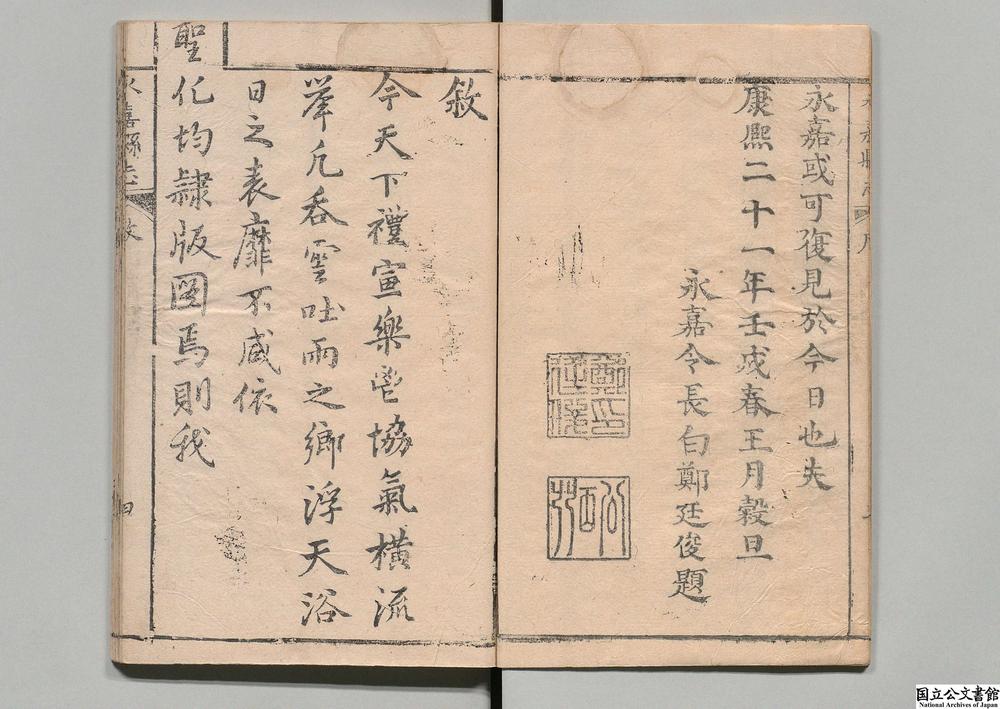 永嘉或可復見於今日也夫
康熙二十一年壬戌春王月穀旦
永嘉令長白鄭廷俊題
敘
今天下禮宣樂鬯協氣橫流
舉凡吞雲吐雨之鄉浮天浴
日之表靡不咸依
聖化均隷版圖焉則我
永嘉縣志
敘
四
国立公文書館
National Archives of Japan